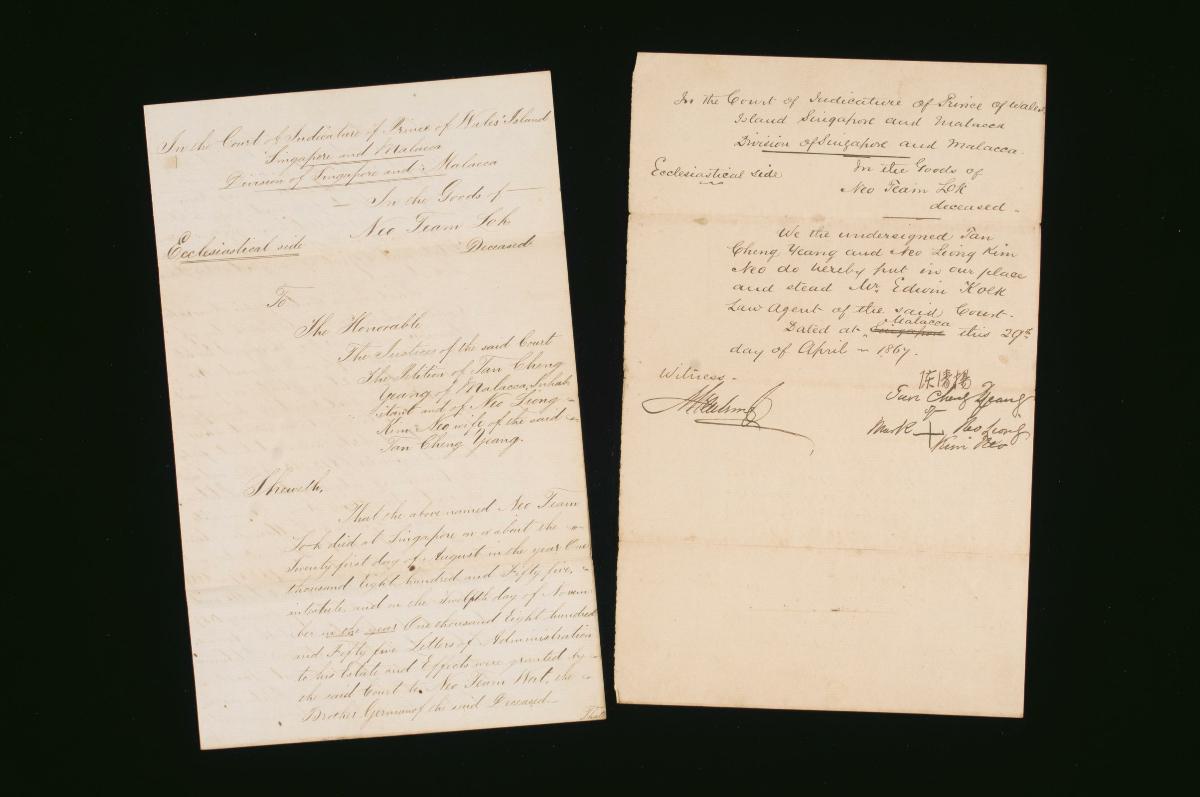 In the Court of Judicature of Prince of Wales' Island
Singapore and Malacca
Division of Singapore and Malacca
In the Goods of
Neo Team Lok
Ecclesiastical side
Deceased
To
The Honorable
The Justices of the said Court
The Petition of Tan Cheng
Yeang of Malacca, Inhab
itant and of Neo Leong
Kim Neo wife of the said
Tan Cheng Yeang.
Sheweth,
That the above named Neo Team
Lok died at Singapore on or about the
Twenty first day of August in the year One
thousand Eight hundred and Fifty five,
intestate, and on the Twelfth day of Novem
ber in the year One thousand Eight hundred
and Fifty five Letters of Administration
to his Estate and Effects were granted by
the said Court to Neo Team Wat, the
Brother German of the said Deceased
That
In the Court of Judicature of Prince of Wales
Island Singapore and Malacca
Division of Singapore and Malacca.
Ecclesiastical side
In the Goods of
Neo Team Lok
deceased.
We the undersigned Tan
Cheng Yeang and Neo Leong Kim
Neo do hereby put in our place
and stead Mr. Edwin Koek
Law Agent of the said Court.
Malacca
Dated at Singapore this 29th
day of April 1867.
Witness
Tan Cheng Yeang
of
Mark + Neo Leong
Kim Neo